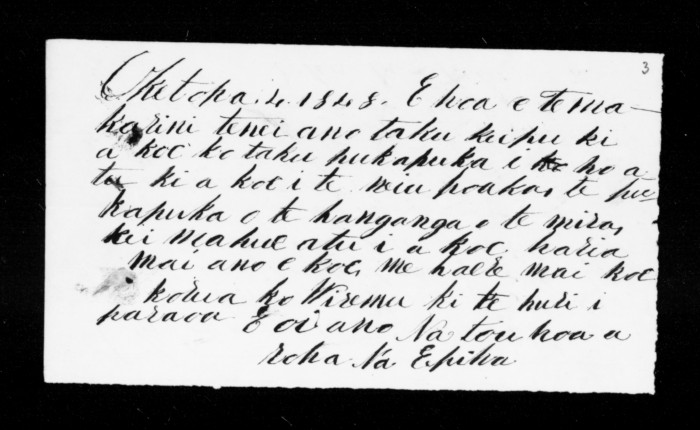 3
Oketopa. 4. 1848. E hoa e te ma-
karini tenei ano taku kupu ki
a koe ko taku pukapuka i ho a
tu ki a koe i te niu poaka, te pu-
kapuka o te hanganga o te mira,
kei mahue atu i a koe, haria
mai ano e koe, me haere mai koe
korua ko Wiremu ki te huri i
paraoa E oi ano Na tou hoa a
roha Na Epiha